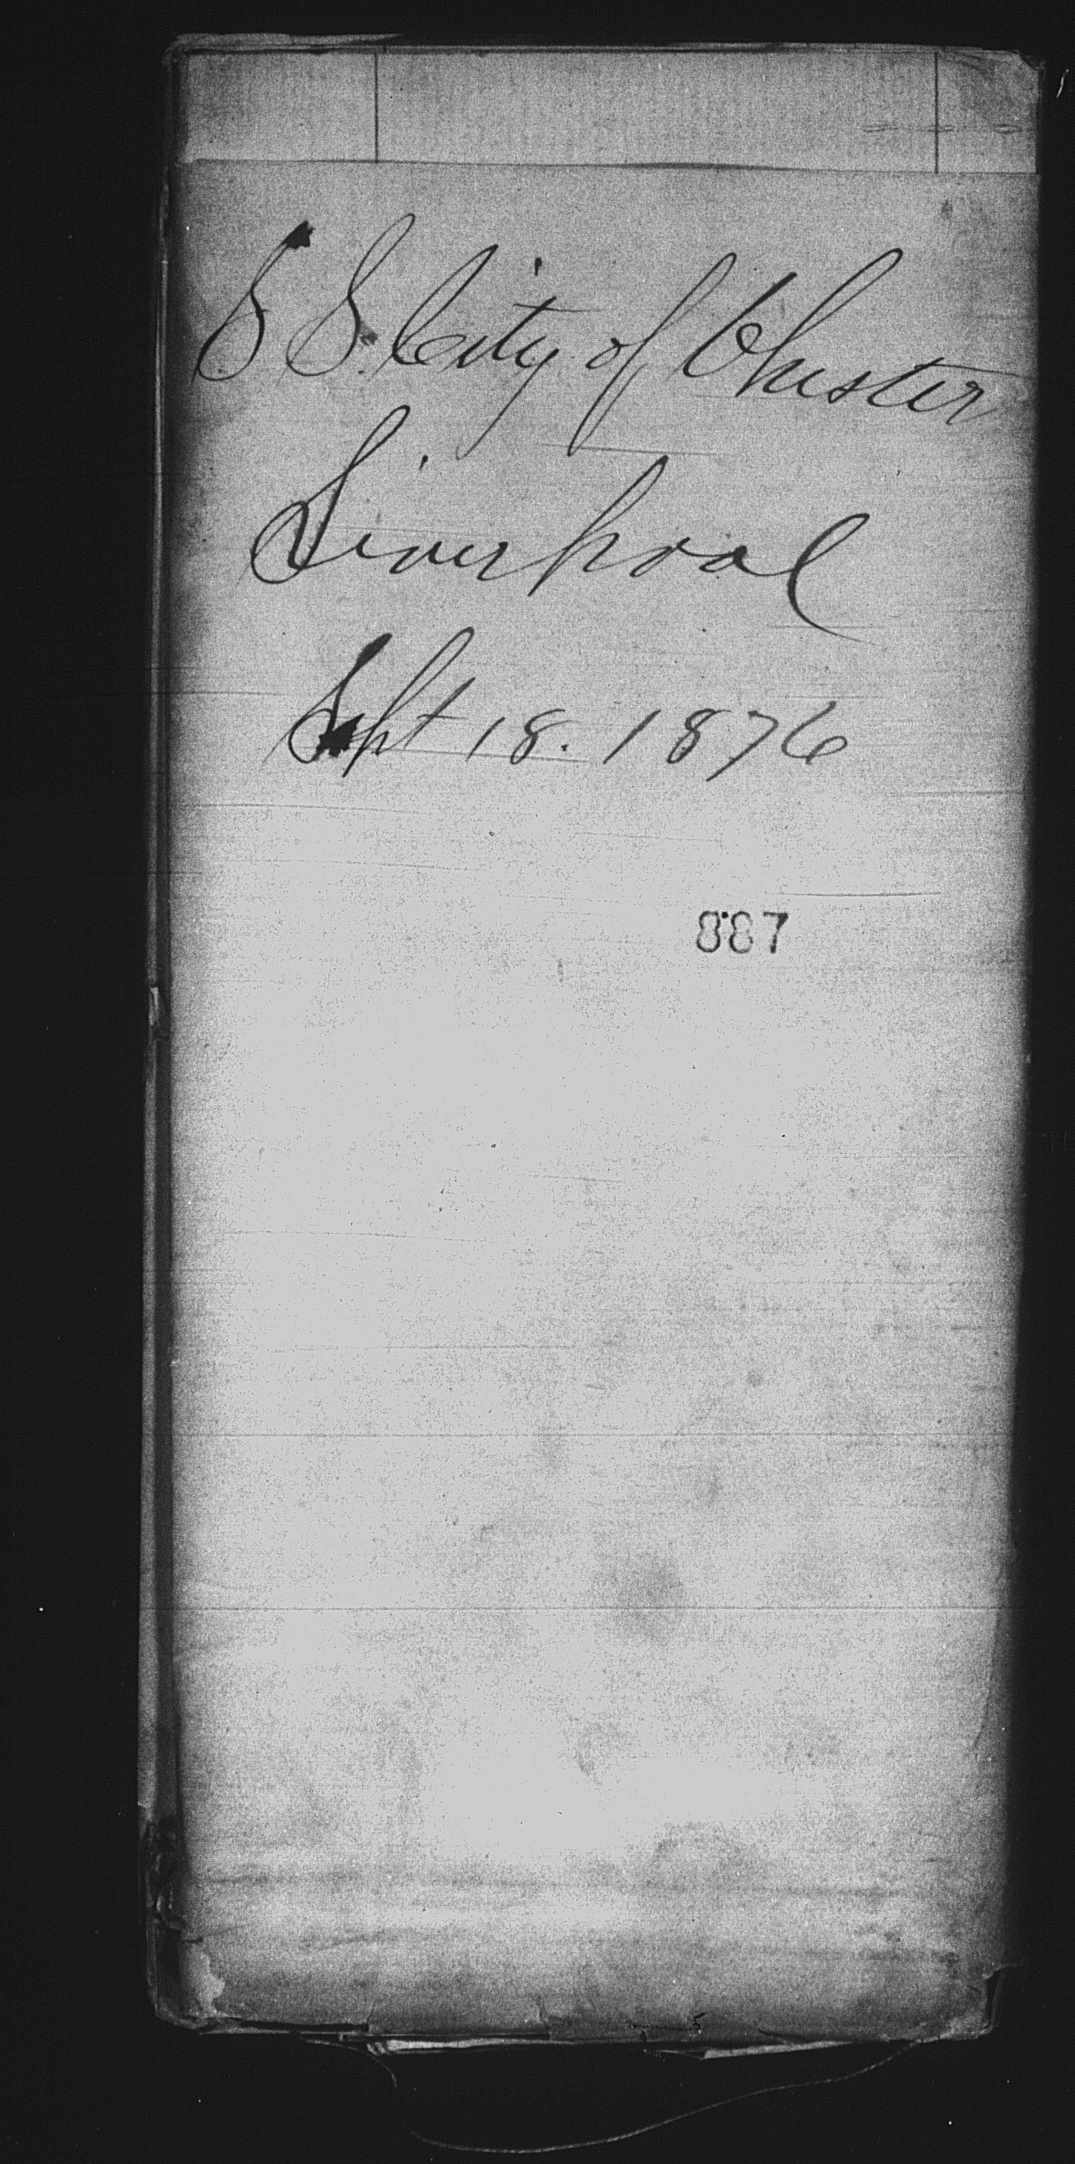 S. S. City of Chester
Liverpool
Sept 18. 1876
887